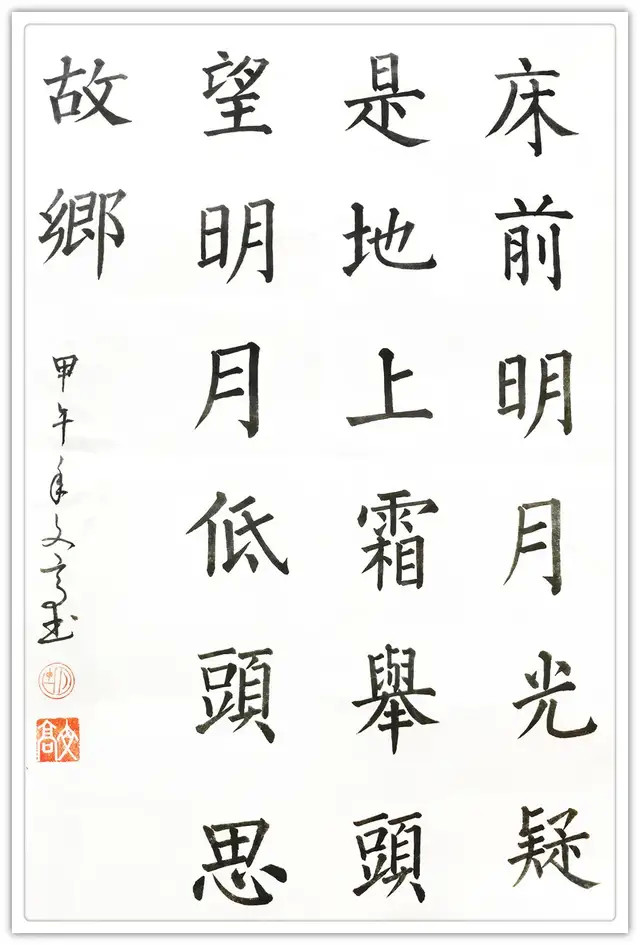 床前明月光疑
是地上霜舉頭
望明月低頭思
故鄉
甲午年文高书
文高